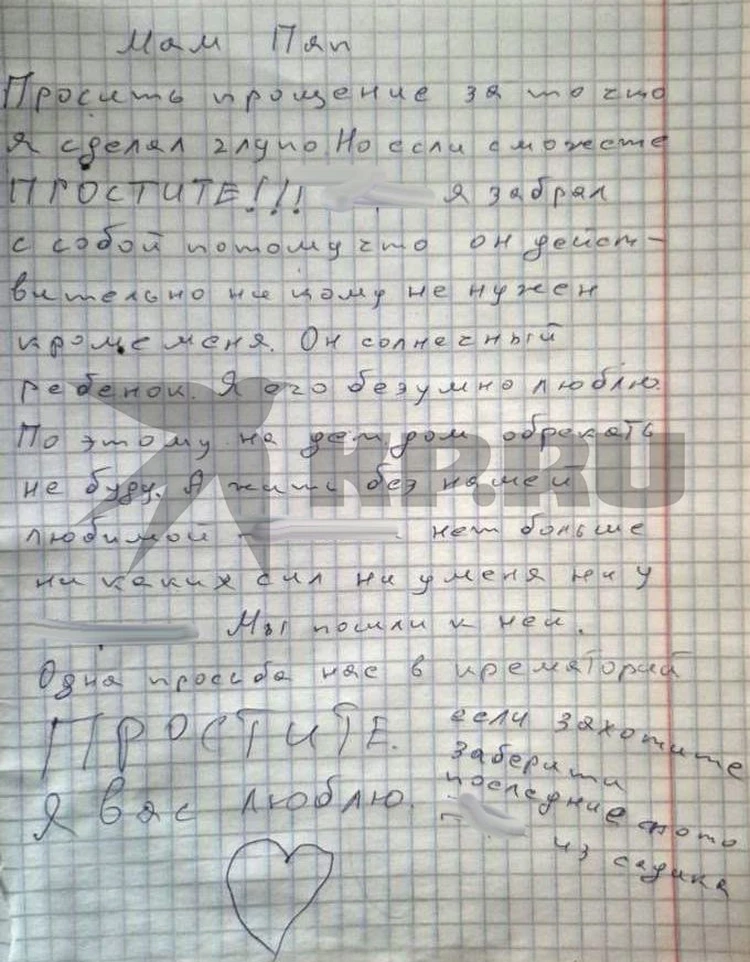 Мам Пап
Просить прощение за то что
я сделал глупо. Но если сможете
ПРОСТИТЕ!!! я забрал
с собой потому что он дейст-
вительно ни кому не нужен
кроме меня. Он солнечный
ребенок. Я его безумно люблю.
По этому на дет дом обрекать
не буду. А жить без нашей
любимой - нет больше
ни каких сил ни у меня ни у
Мы пошли к ней.
Одна просьба нас в крематорий
ПРОСТИТЕ.
Я вас люблю.
если захотите
заберити
последние фото
из садика
KP.RU